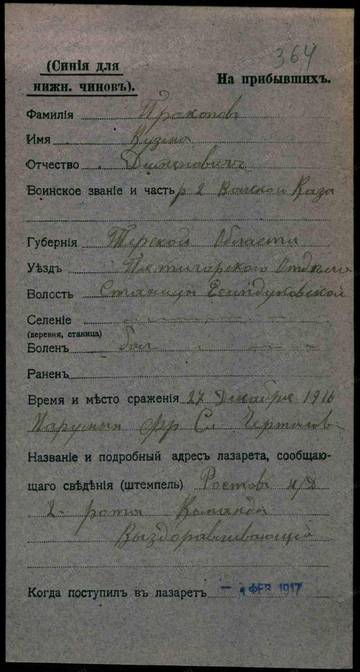 364
(Синія для
нижн. чиновъ).
На прибывшихъ.
Фамилія Пракоповъ
Имя Кузьма
Отчество
Воинское званіе и часть р 2 Каза
Губернія Терской Области
Уѣздъ Пятигорского Отдѣла
Волость Станицы Есиндуковской
Селеніе
(деревня, станица)
Боленъ бол
Раненъ
Время и мѣсто сраженія 27 Декабря 1916
Фр Сл
Названіе и подробный адресъ лазарета, сообщаю-
щаго свѣдѣнія (штемпель) Ростовъ н/Д
2- рота Команда
Выздоравливающій
Когда поступилъ въ лазаретъ ФЕВ 1917